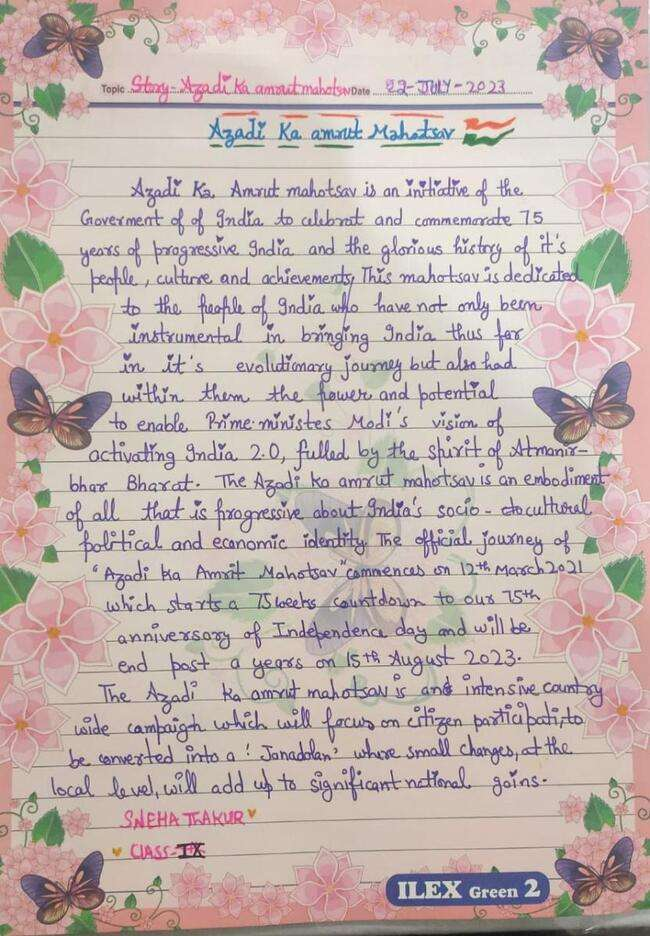 Topic Story- Azadi Ka amrut mahotsav Date 22-JULY-2023
Azadi Ka amrut Mahotsav
Azadi Ka Amrut mahotsav is an initiative of the
Goverment of of India to celebrat and commemorate 75
years of progressive India and the glorious history of it's
people, culture and achievements, This mahotsav is dedicated
to the people of India who have not only been
instrumental in bringing India thus far
in it's evolutionary journey but also had
within them the power and potential
to enable Prime-ministes Modi's vision of
activating India 2.0, fulled by the spirit of Atmanir-
bhar Bharat. The Azadi ka amrut mahotsav is an embodiment
of all that is progressive about India's socio - cultural
political and economic identity. The official journey of
"Azadi ka Amrit Mahotsav" commences on 12th March 2021
which starts a 75 weeks countdown to our 75th
anniversary of Independence day and will be
end post a years on 15th August 2023.
The Azadi ka amrut mahotsav is and intensive country
wide campaigh which will focus on citizen participati, to
be converted into a 'Janadolan' where small changes, at the
local level, will add up to significant national gains.
SNEHA THAKUR
CLASS-IX
ILEX Green 2